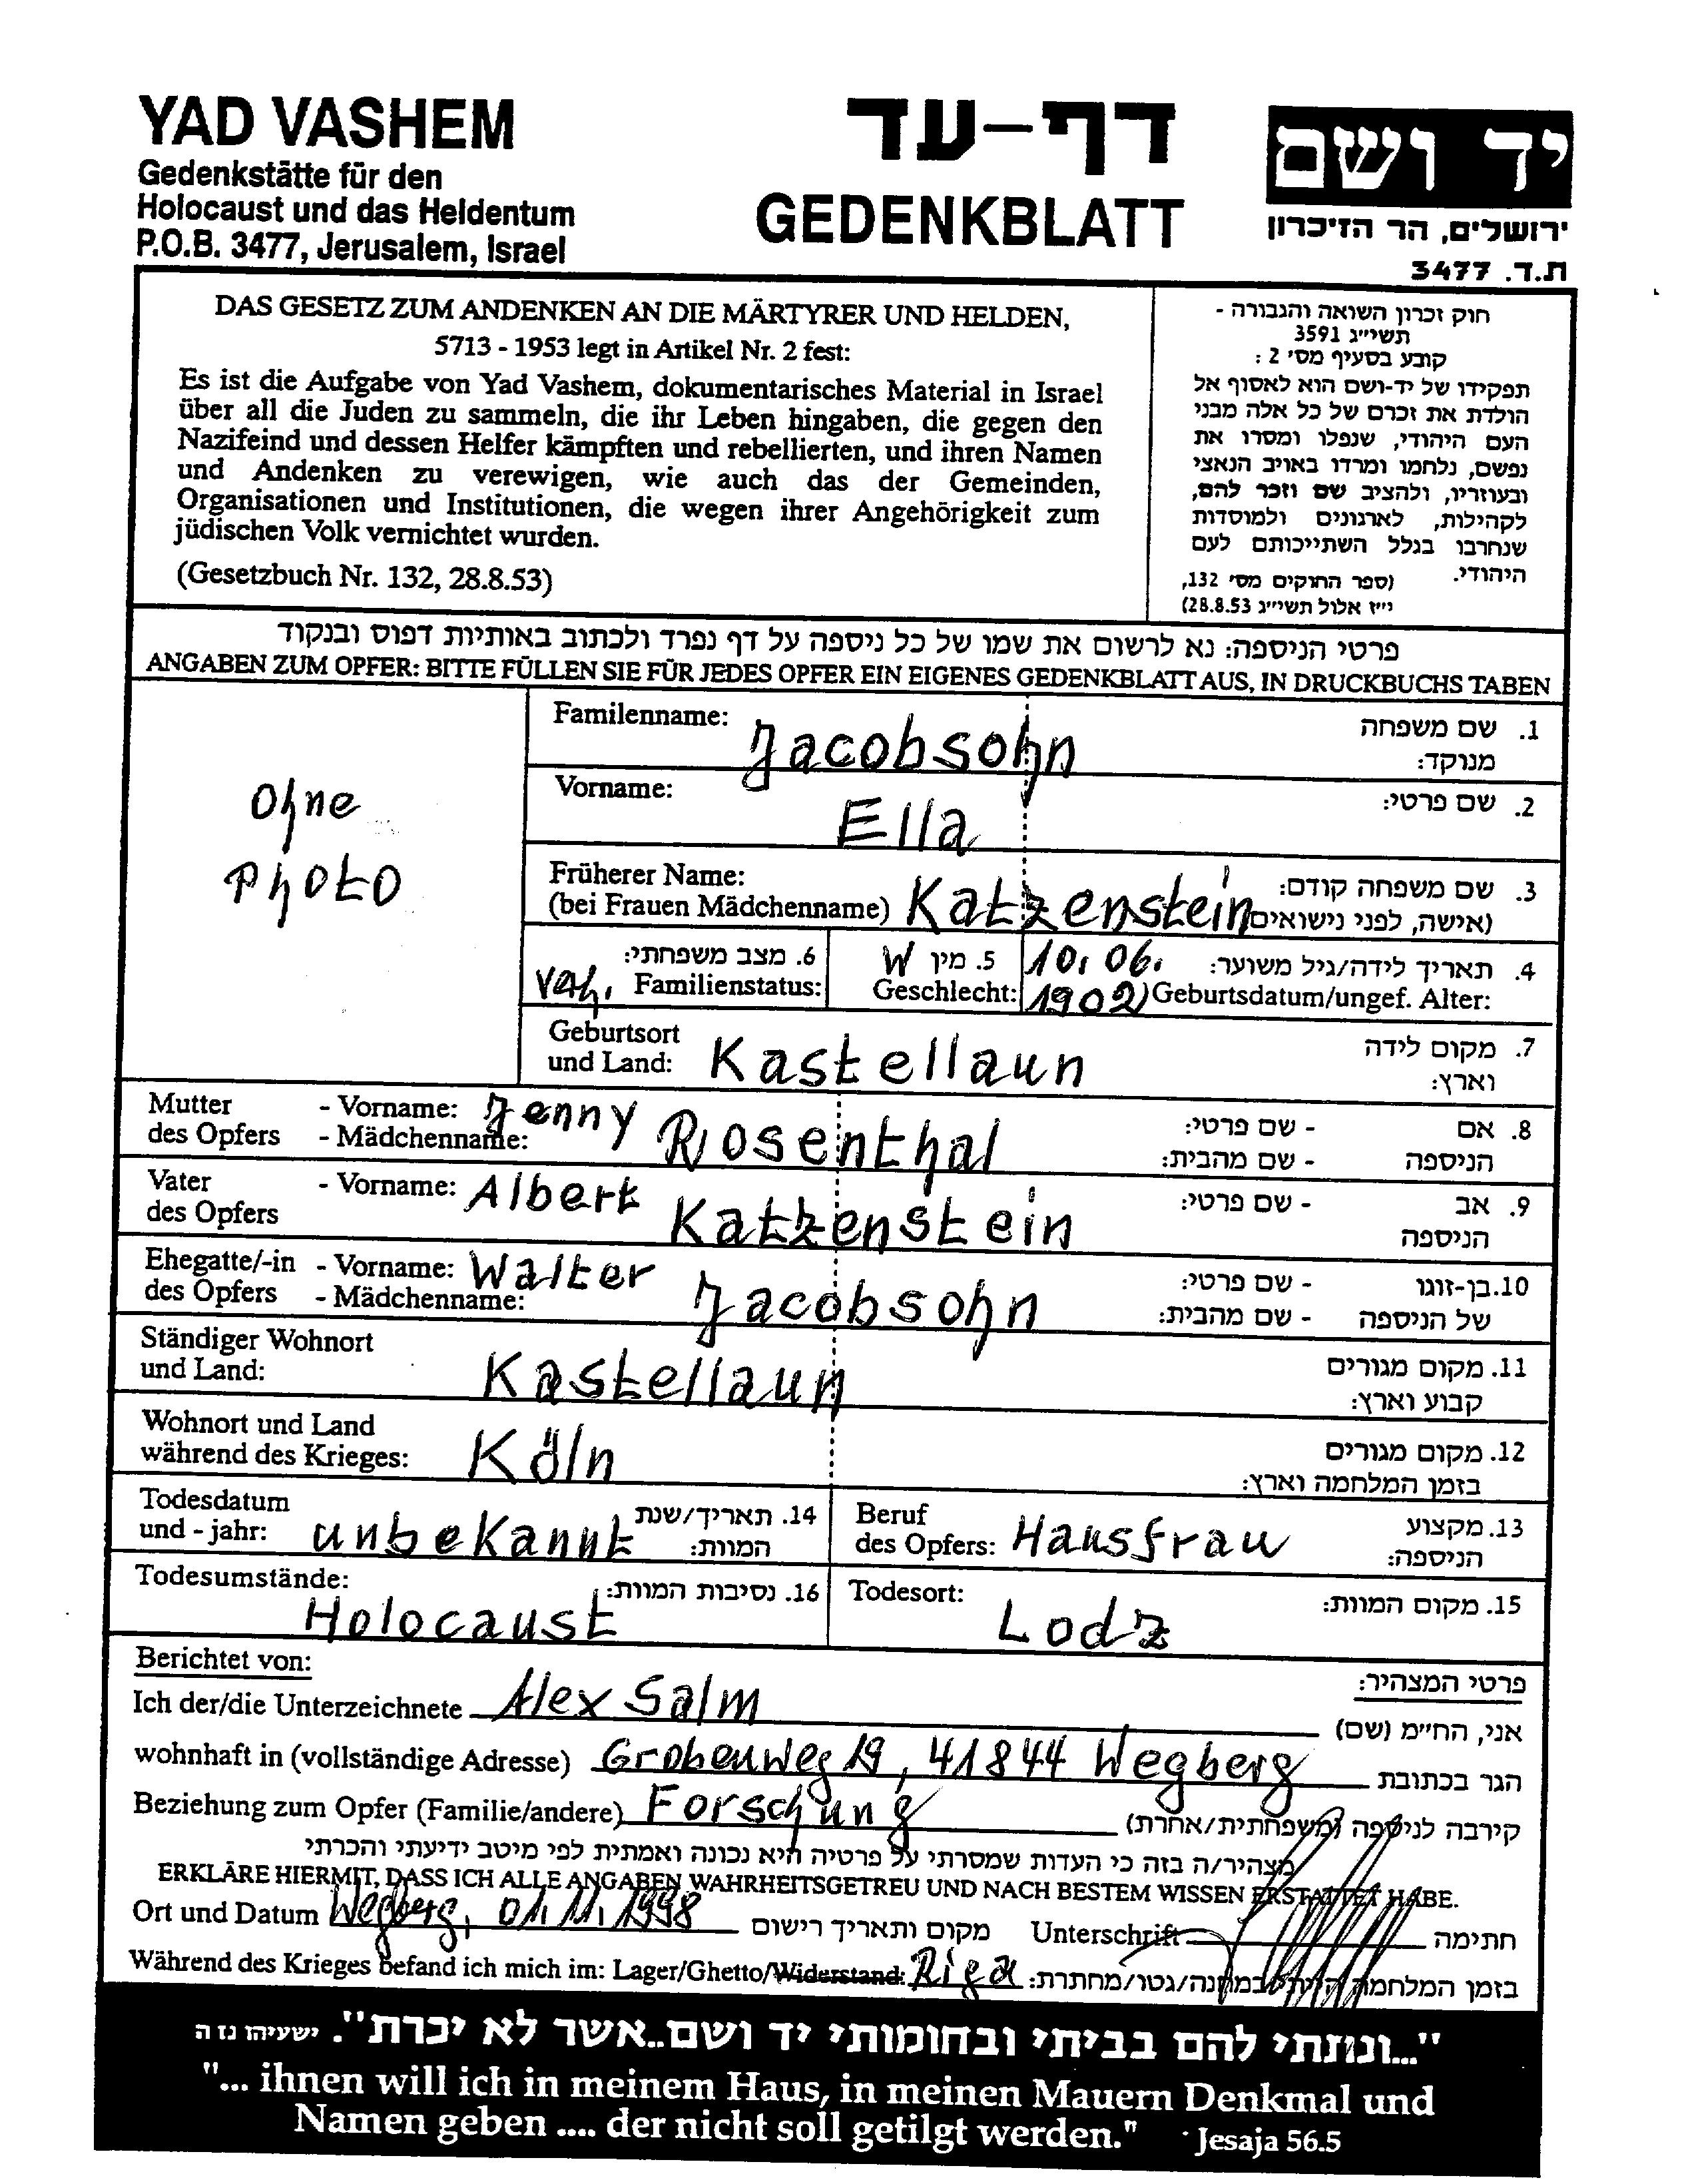 YAD VASHEM
Gedenkstätte für den
Holocaust und das Heldentum
P.O.B. 3477, Jerusalem, Israel
דף-עד
GEDENKBLATT
יד ושם
ירושלים, הר הזיכרון
ת.ד. 3477
DAS GESETZ ZUM ANDENKEN AN DIE MÄRTYRER UND HELDEN,
5713 - 1953 legt in Artikel Nr. 2 fest:
Es ist die Aufgabe von Yad Vashem, dokumentarisches Material in Israel
über all die Juden zu sammeln, die ihr Leben hingaben, die gegen den
Nazifeind und dessen Helfer kämpften und rebellierten, und ihren Namen
und Andenken zu verewigen, wie auch das der Gemeinden,
Organisationen und Institutionen, die wegen ihrer Angehörigkeit zum
jüdischen Volk vernichtet wurden.
(Gesetzbuch Nr. 132, 28.8.53)
חוק זכרון השואה והגבורה -
תשי״ג 3591
קובע בסעיף מס׳ 2 :
תפקידו של יד-ושם הוא לאסוף אל
הולדת את זכרם של כל אלה מבני
העם היהודי, שנפלו ומסרו את
נפשם, נלחמו ומרדו באויב הנאצי
ובעוזריו, ולהציב שם וזכר להם,
לקהילות, לארגונים ולמוסדות
שנחרבו בגלל השתייכותם לעם
היהודי. (ספר החוקים מס׳ 132,
י״ז אלול תשי״ג 28.8.53)
פרטי הניספה: נא לרשום את שמו של כל ניספה על דף נפרד ולכתוב באותיות דפוס ובנקוד
ANGABEN ZUM OPFER: BITTE FÜLLEN SIE FÜR JEDES OPFER EIN EIGENES GEDENKBLATT AUS, IN DRUCKBUCHS TABEN
Ohne
Photo
Familenname: Jacobsohn 1. שם משפחה
מנוקד:
Vorname: Ella 2. שם פרטי:
Früherer Name: 3. שם משפחה קודם:
(bei Frauen Mädchenname) Katzenstein (אישה, לפני נישואים
6. מצב משפחתי: 5. מין W 10.06. 4. תאריך לידה/גיל משוער:
Verh. Familienstatus: Geschlecht: 1902) Geburtsdatum/ungef. Alter:
Geburtsort 7. מקום לידה
und Land: Kastellaun וארץ:
Mutter - Vorname: Jenny - שם פרטי: 8. אם
des Opfers - Mädchenname: Rosenthal - שם מהבית: הניספה
Vater - Vorname: Albert - שם פרטי: 9. אב
des Opfers Katzenstein הניספה
Ehegatte/-in - Vorname: Walter - שם פרטי: 10. בן-זוגו
des Opfers - Mädchenname: Jacobsohn - שם מהבית: של הניספה
Ständiger Wohnort 11. מקום מגורים
und Land: Kastellaun קבוע וארץ:
Wohnort und Land 12. מקום מגורים
während des Krieges: Köln בזמן המלחמה וארץ:
Todesdatum 14. תאריך/שנת Beruf 13. מקצוע
und - jahr: unbekannt המוות: des Opfers: Hausfrau הניספה:
Todesumstände: 16. נסיבות המוות: Todesort: 15. מקום המוות:
Holocaust Lodz
Berichtet von: פרטי המצהיר:
Ich der/die Unterzeichnete Alex Salm אני, הח״מ (שם)
wohnhaft in (vollständige Adresse) Grobenweg 19, 41844 Wegberg הגר בכתובת
Beziehung zum Opfer (Familie/andere) Forschung קירבה לניספה (משפחתית/אחרת)
מצהיר/ה בזה כי העדות שמסרתי על פרטיה היא נכונה ואמתית לפי מיטב ידיעתי והכרתי
ERKLÄRE HIERMIT, DASS ICH ALLE ANGABEN WAHRHEITSGETREU UND NACH BESTEM WISSEN ERSTATTET HABE.
Ort und Datum Wegberg, 01.11.1998 מקום ותאריך רישום Unterschrift חתימה
Während des Krieges befand ich mich im: Lager/Ghetto/Widerstand: Riga בזמן המלחמה הייתי במחנה/גטו/מחתרת:
"...ונתתי להם בביתי ובחומותי יד ושם..אשר לא יכרת". ישעיהו נו ה
"... ihnen will ich in meinem Haus, in meinen Mauern Denkmal und
Namen geben .... der nicht soll getilgt werden." Jesaja 56.5